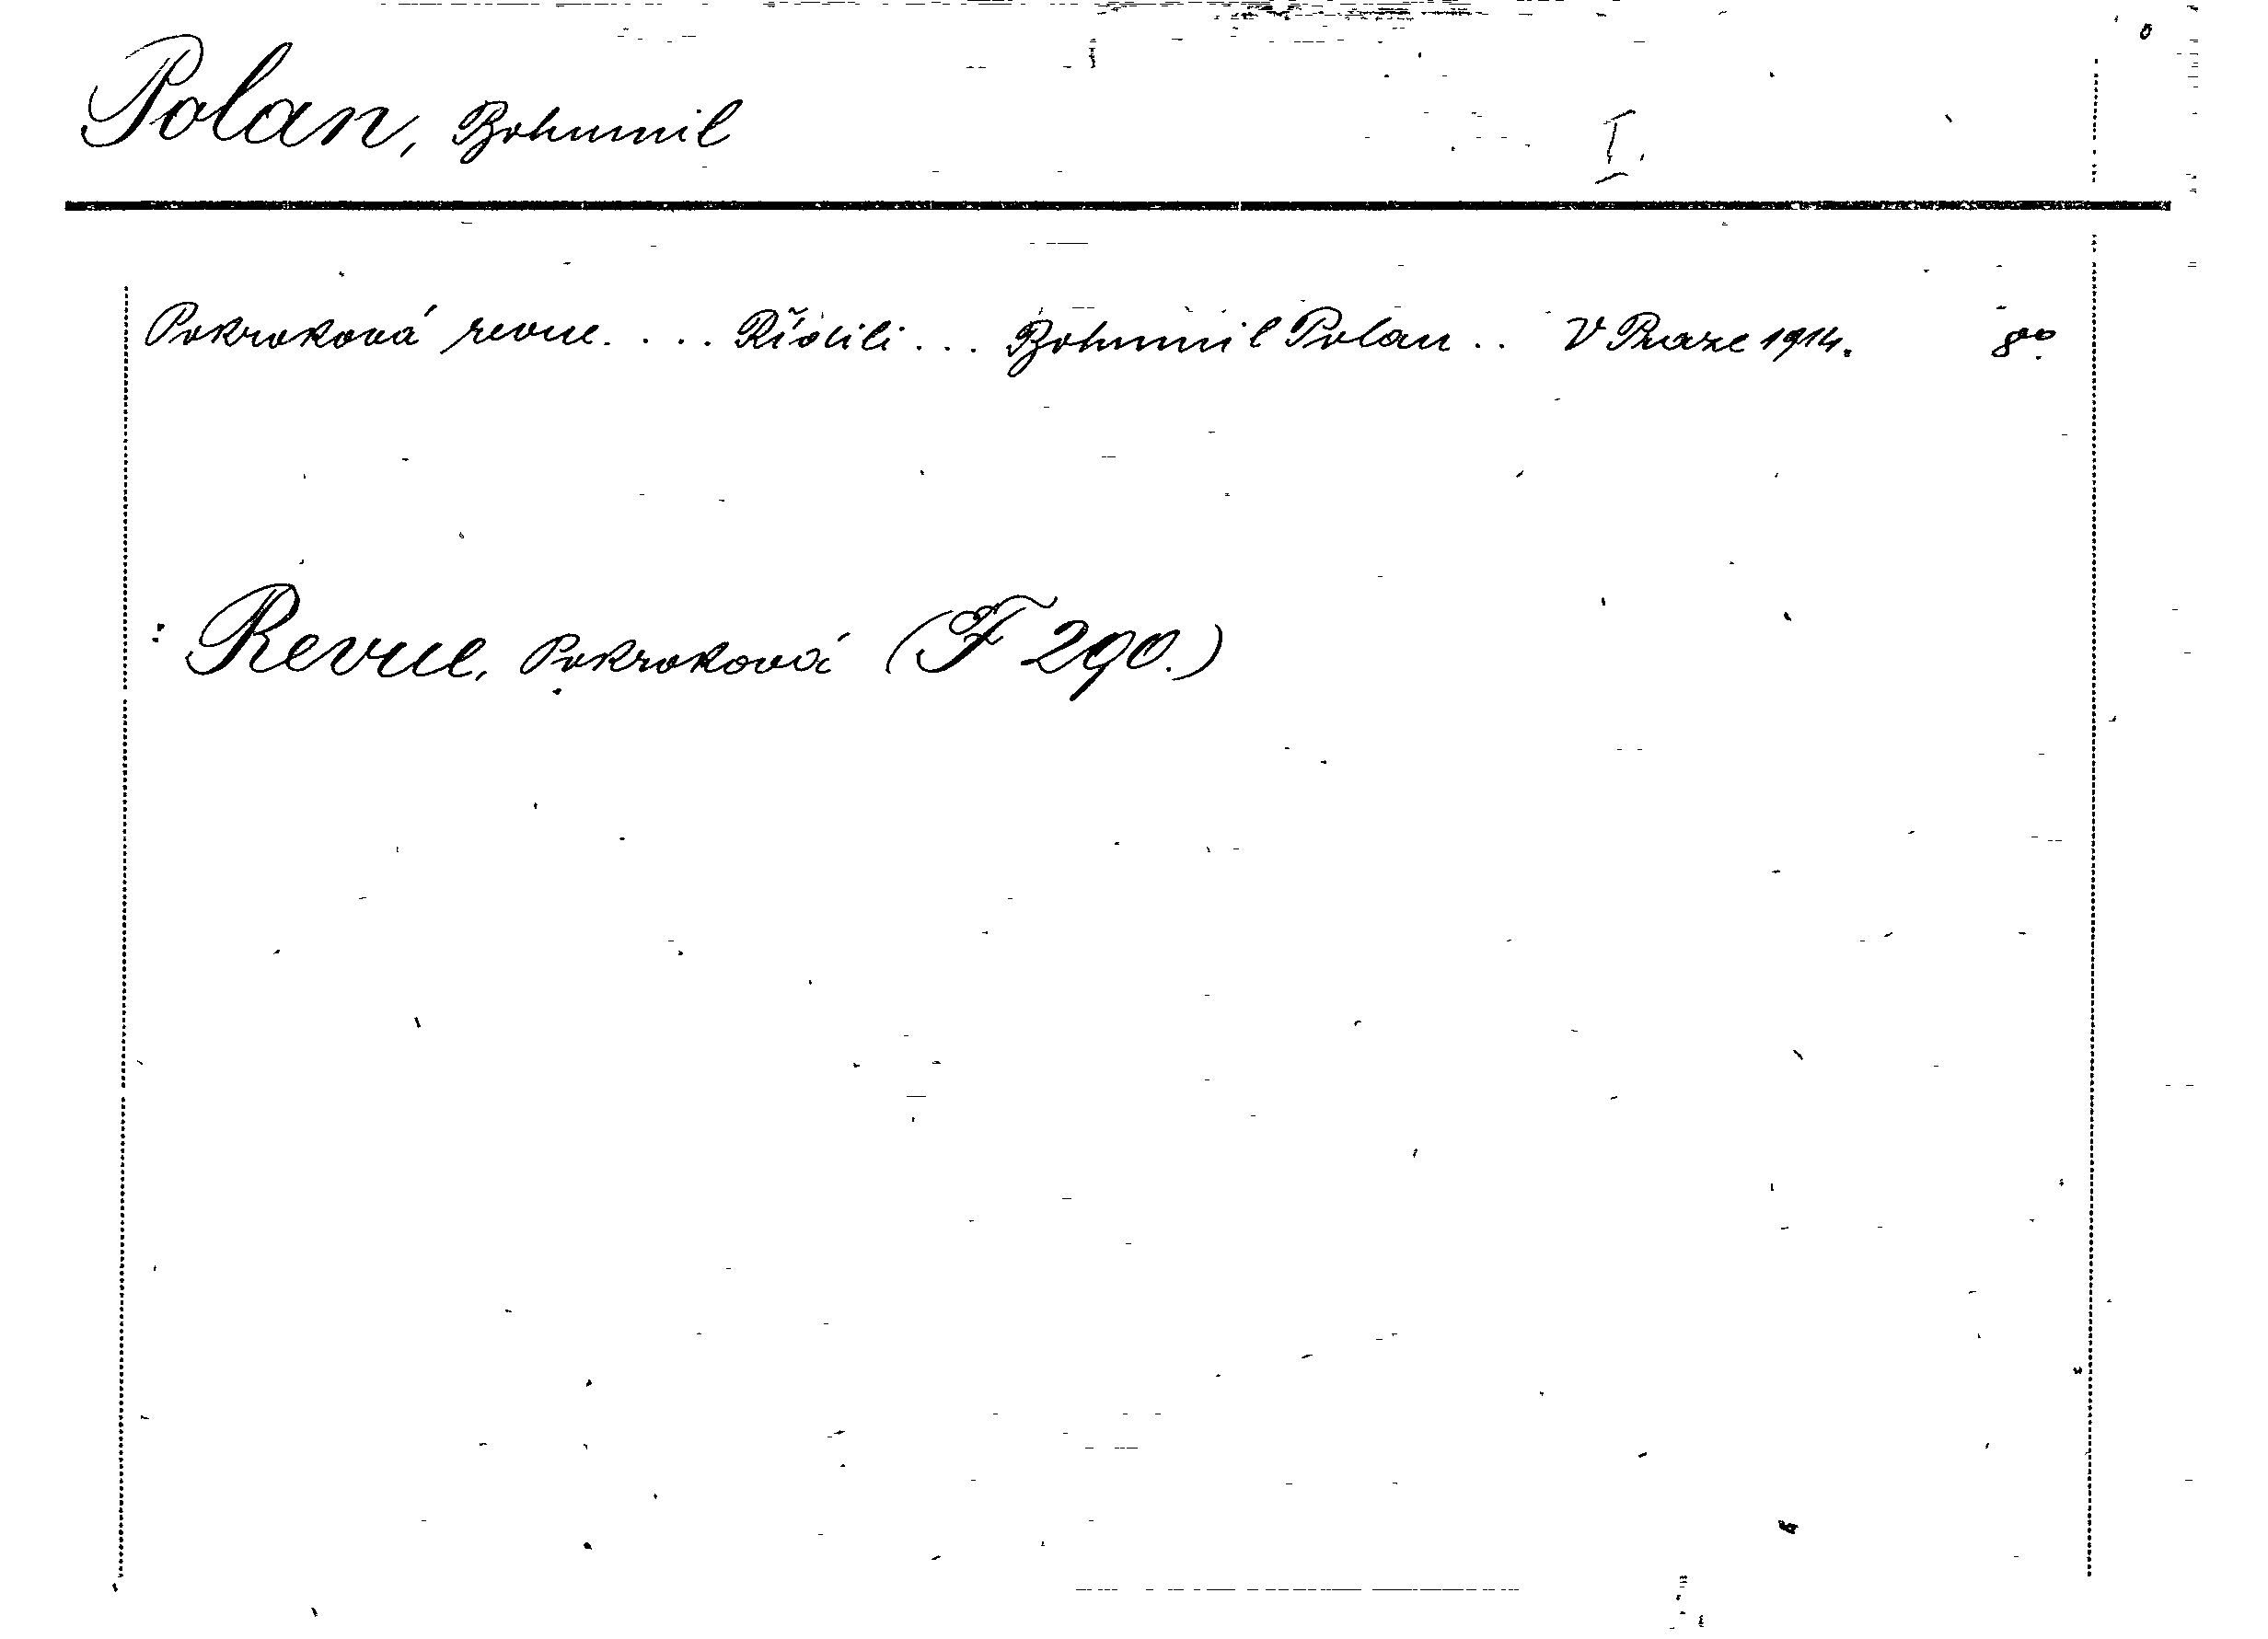 Polan, Bohumil I.
Pokroková revue.... Řídili... Bohumil Polan.. V Praze 1914. 8º.
: Revue, Pokroková (F 290.)